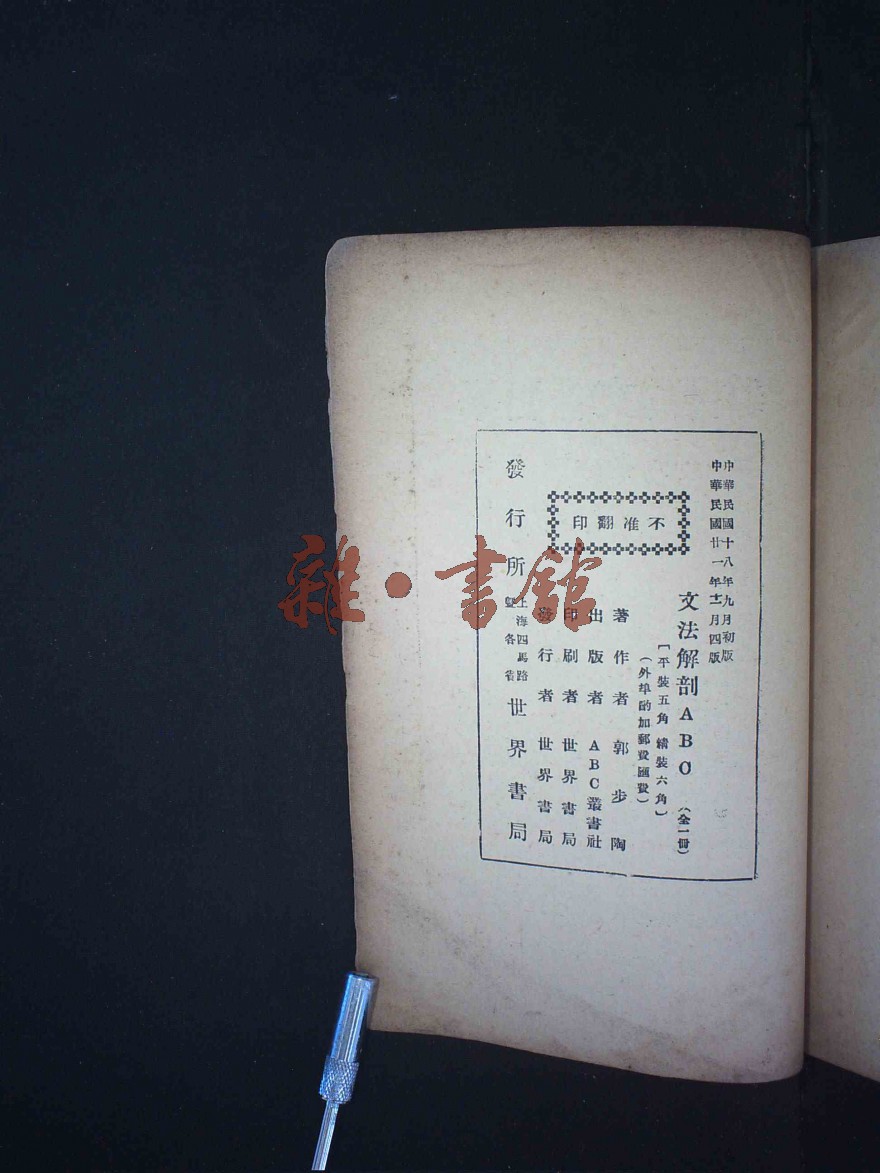 中華民國十八年九月初版
中華民國廿一年十二月四版
文法解剖ABC(全一冊)
[平裝五角 精裝六角]
(外埠酌加郵費匯費)
不准翻印
著作者 郭步陶
出版者 ABC叢書社
印刷者 世界書局
發行者 世界書局
發行所 上海四馬路暨各省 世界書局
雜·書館